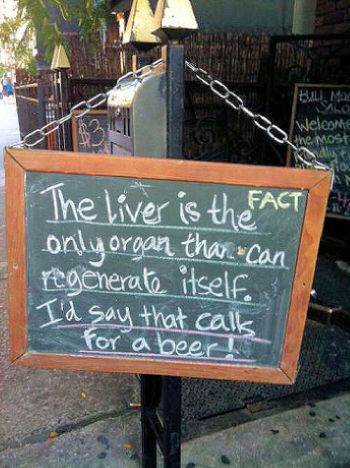 FACT
The liver is the
only organ that can
regenerate itself.
I'd say that calls
for a beer!
$3
Welcome
the most